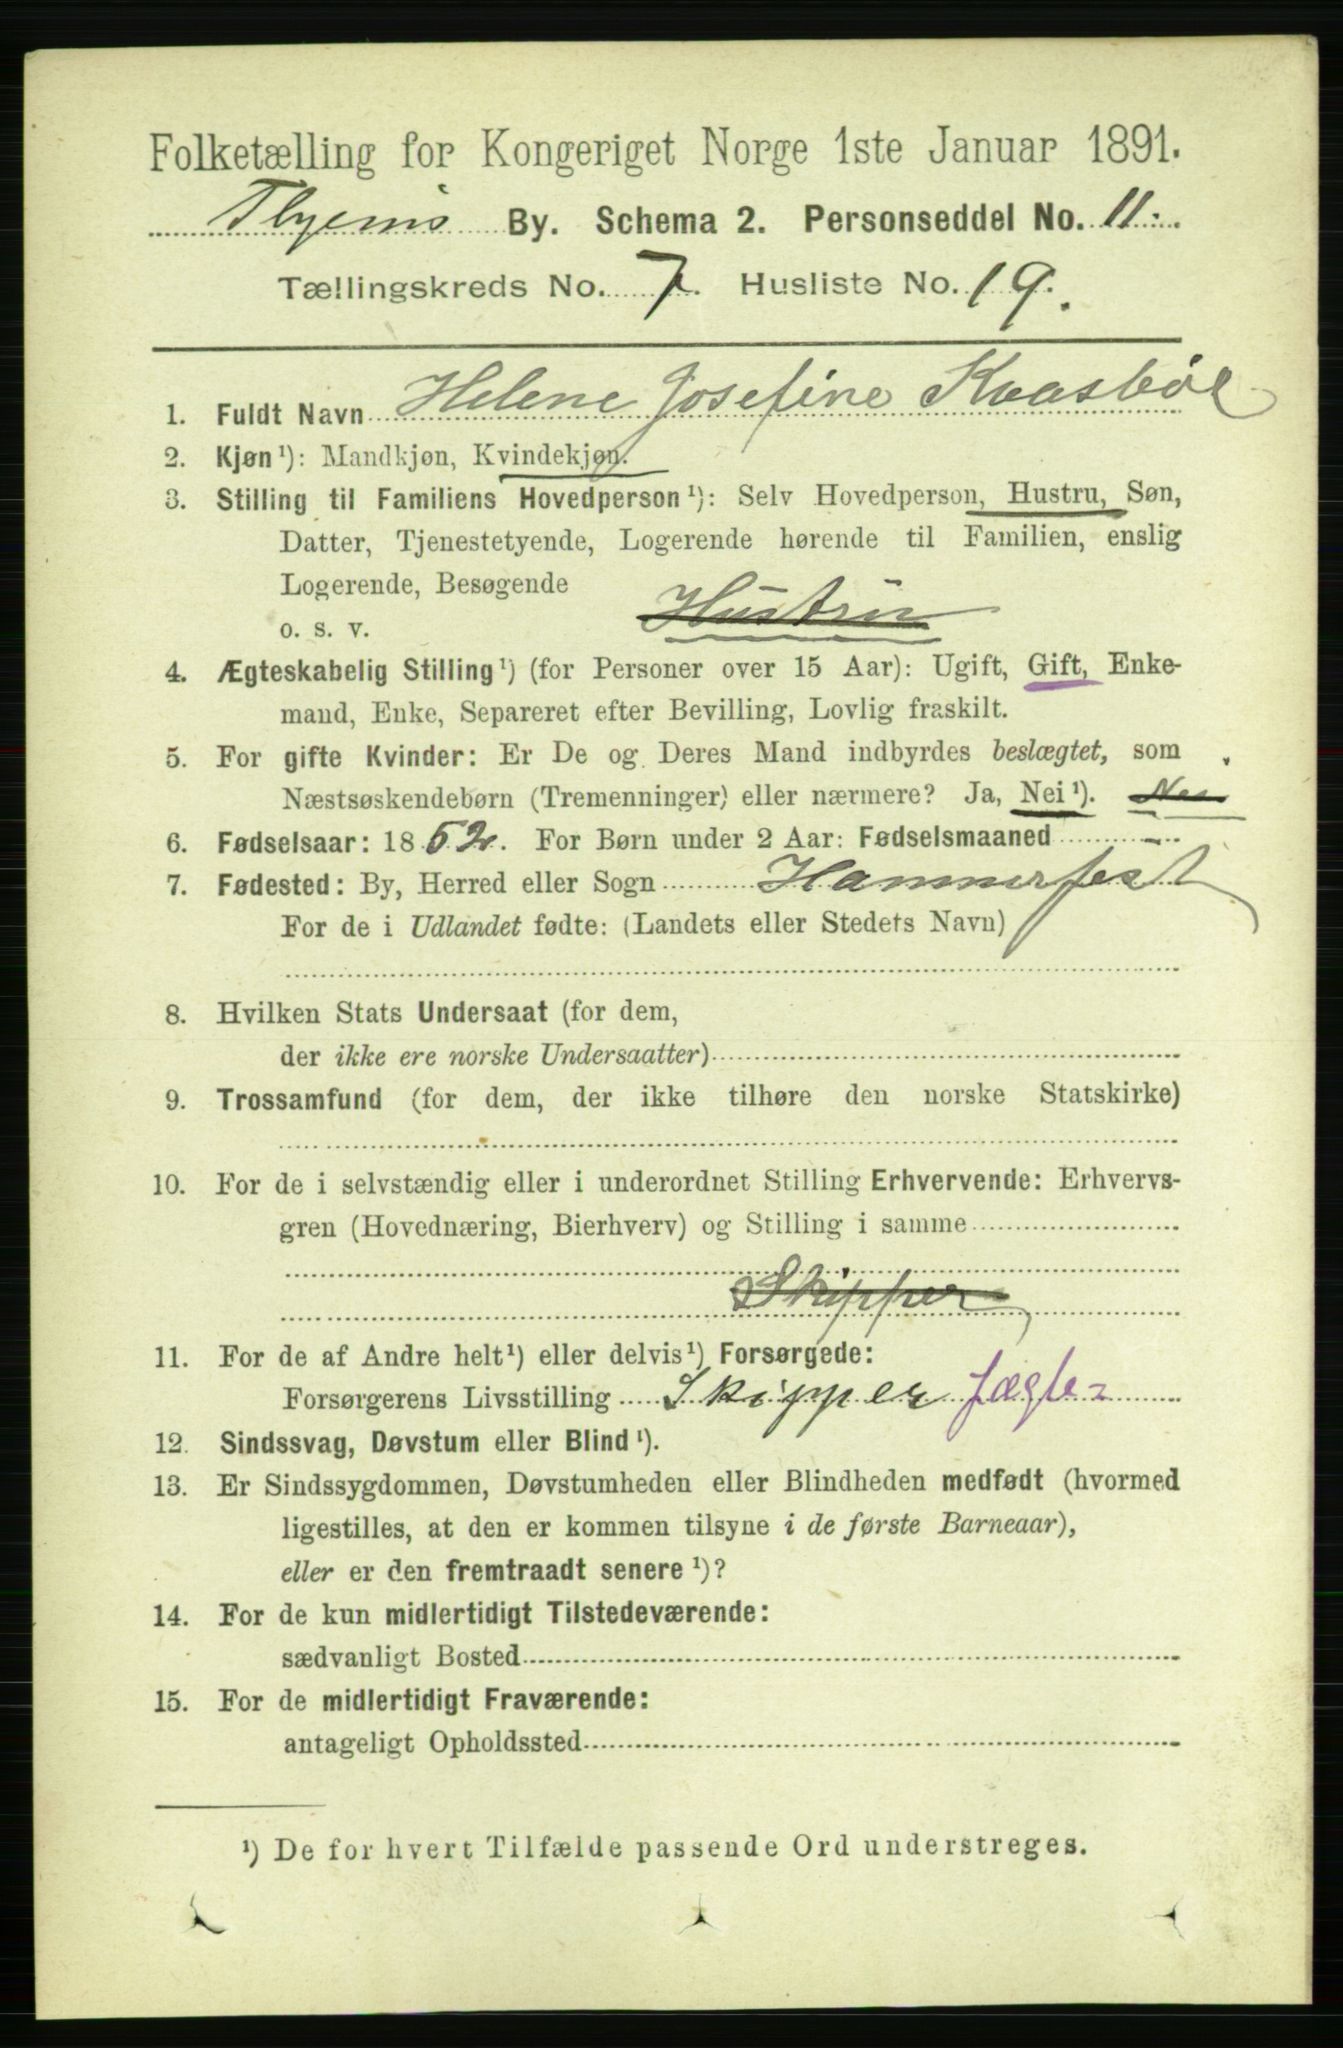 Folketælling for Kongeriget Norge 1ste Januar 1891.
By. Schema 2. Personseddel No. 11.
Tællingskreds No. 7. Husliste No. 19.
1. Fuldt Navn Helene Josefine Kvasbøe
2. Kjøn¹): Mandkjøn, Kvindekjøn.
3. Stilling til Familiens Hovedperson¹): Selv Hovedperson, Hustru, Søn,
Datter, Tjenestetyende, Logerende hørende til Familien, enslig
Logerende, Besøgende
o. s. v. Hustru
4. Ægteskabelig Stilling¹) (for Personer over 15 Aar): Ugift, Gift, Enke-
mand, Enke, Separeret efter Bevilling, Lovlig fraskilt.
5. For gifte Kvinder: Er De og Deres Mand indbyrdes beslægtet, som
Næstsøskendebørn (Tremenninger) eller nærmere? Ja, Nei¹). Nei
6. Fødselsaar: 1852. For Børn under 2 Aar: Fødselsmaaned
7. Fødested: By, Herred eller Sogn Hammerfest
For de i Udlandet fødte: (Landets eller Stedets Navn)
8. Hvilken Stats Undersaat (for dem,
der ikke ere norske Undersaatter)
9. Trossamfund (for dem, der ikke tilhøre den norske Statskirke)
10. For de i selvstændig eller i underordnet Stilling Erhvervende: Erhvervs-
gren (Hovednæring, Bierhverv) og Stilling i samme
Skipper
11. For de af Andre helt¹) eller delvis¹) Forsørgede:
Forsørgerens Livsstilling Skipper
12. Sindssvag, Døvstum eller Blind¹).
13. Er Sindssygdommen, Døvstumheden eller Blindheden medfødt (hvormed
ligestilles, at den er kommen tilsyne i de første Barneaar),
eller er den fremtraadt senere¹)?
14. For de kun midlertidigt Tilstedeværende:
sædvanligt Bosted
15. For de midlertidigt Fraværende:
antageligt Opholdssted
¹) De for hvert Tilfælde passende Ord understreges.